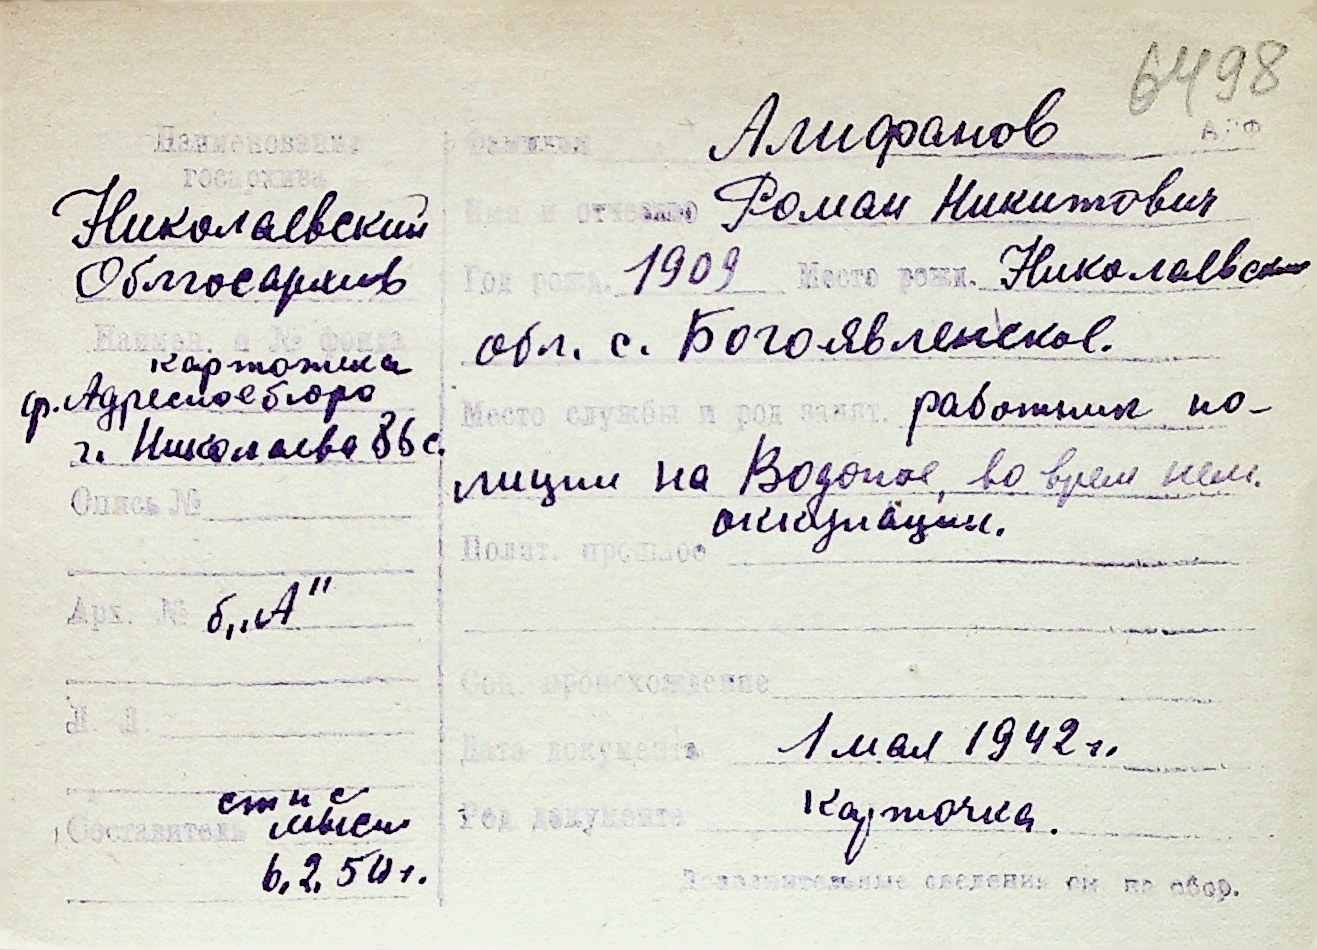 6498
Наименование
госархива
Николаевский
Облгосархив
Наимен. и № фонда
картотека
ф. Адресное бюро
г. Николаева
Опись №
Арх. № б. „А"
Л. Л.
Составитель
6.2.50 г.
Фамилия Алифанов
Имя и отчество Роман Никитович
Год рожд. 1909 Место рожд. Николаевская
обл. с. Богоявленское.
Место службы и род занят. работник по-
лиции на Водопое, во врем нем.
оккупации.
Полит. прошлое
Соц. происхождение
Дата документа 1 мая 1942 г.
Род документа карточка.
Дополнительные сведения см. на обор.